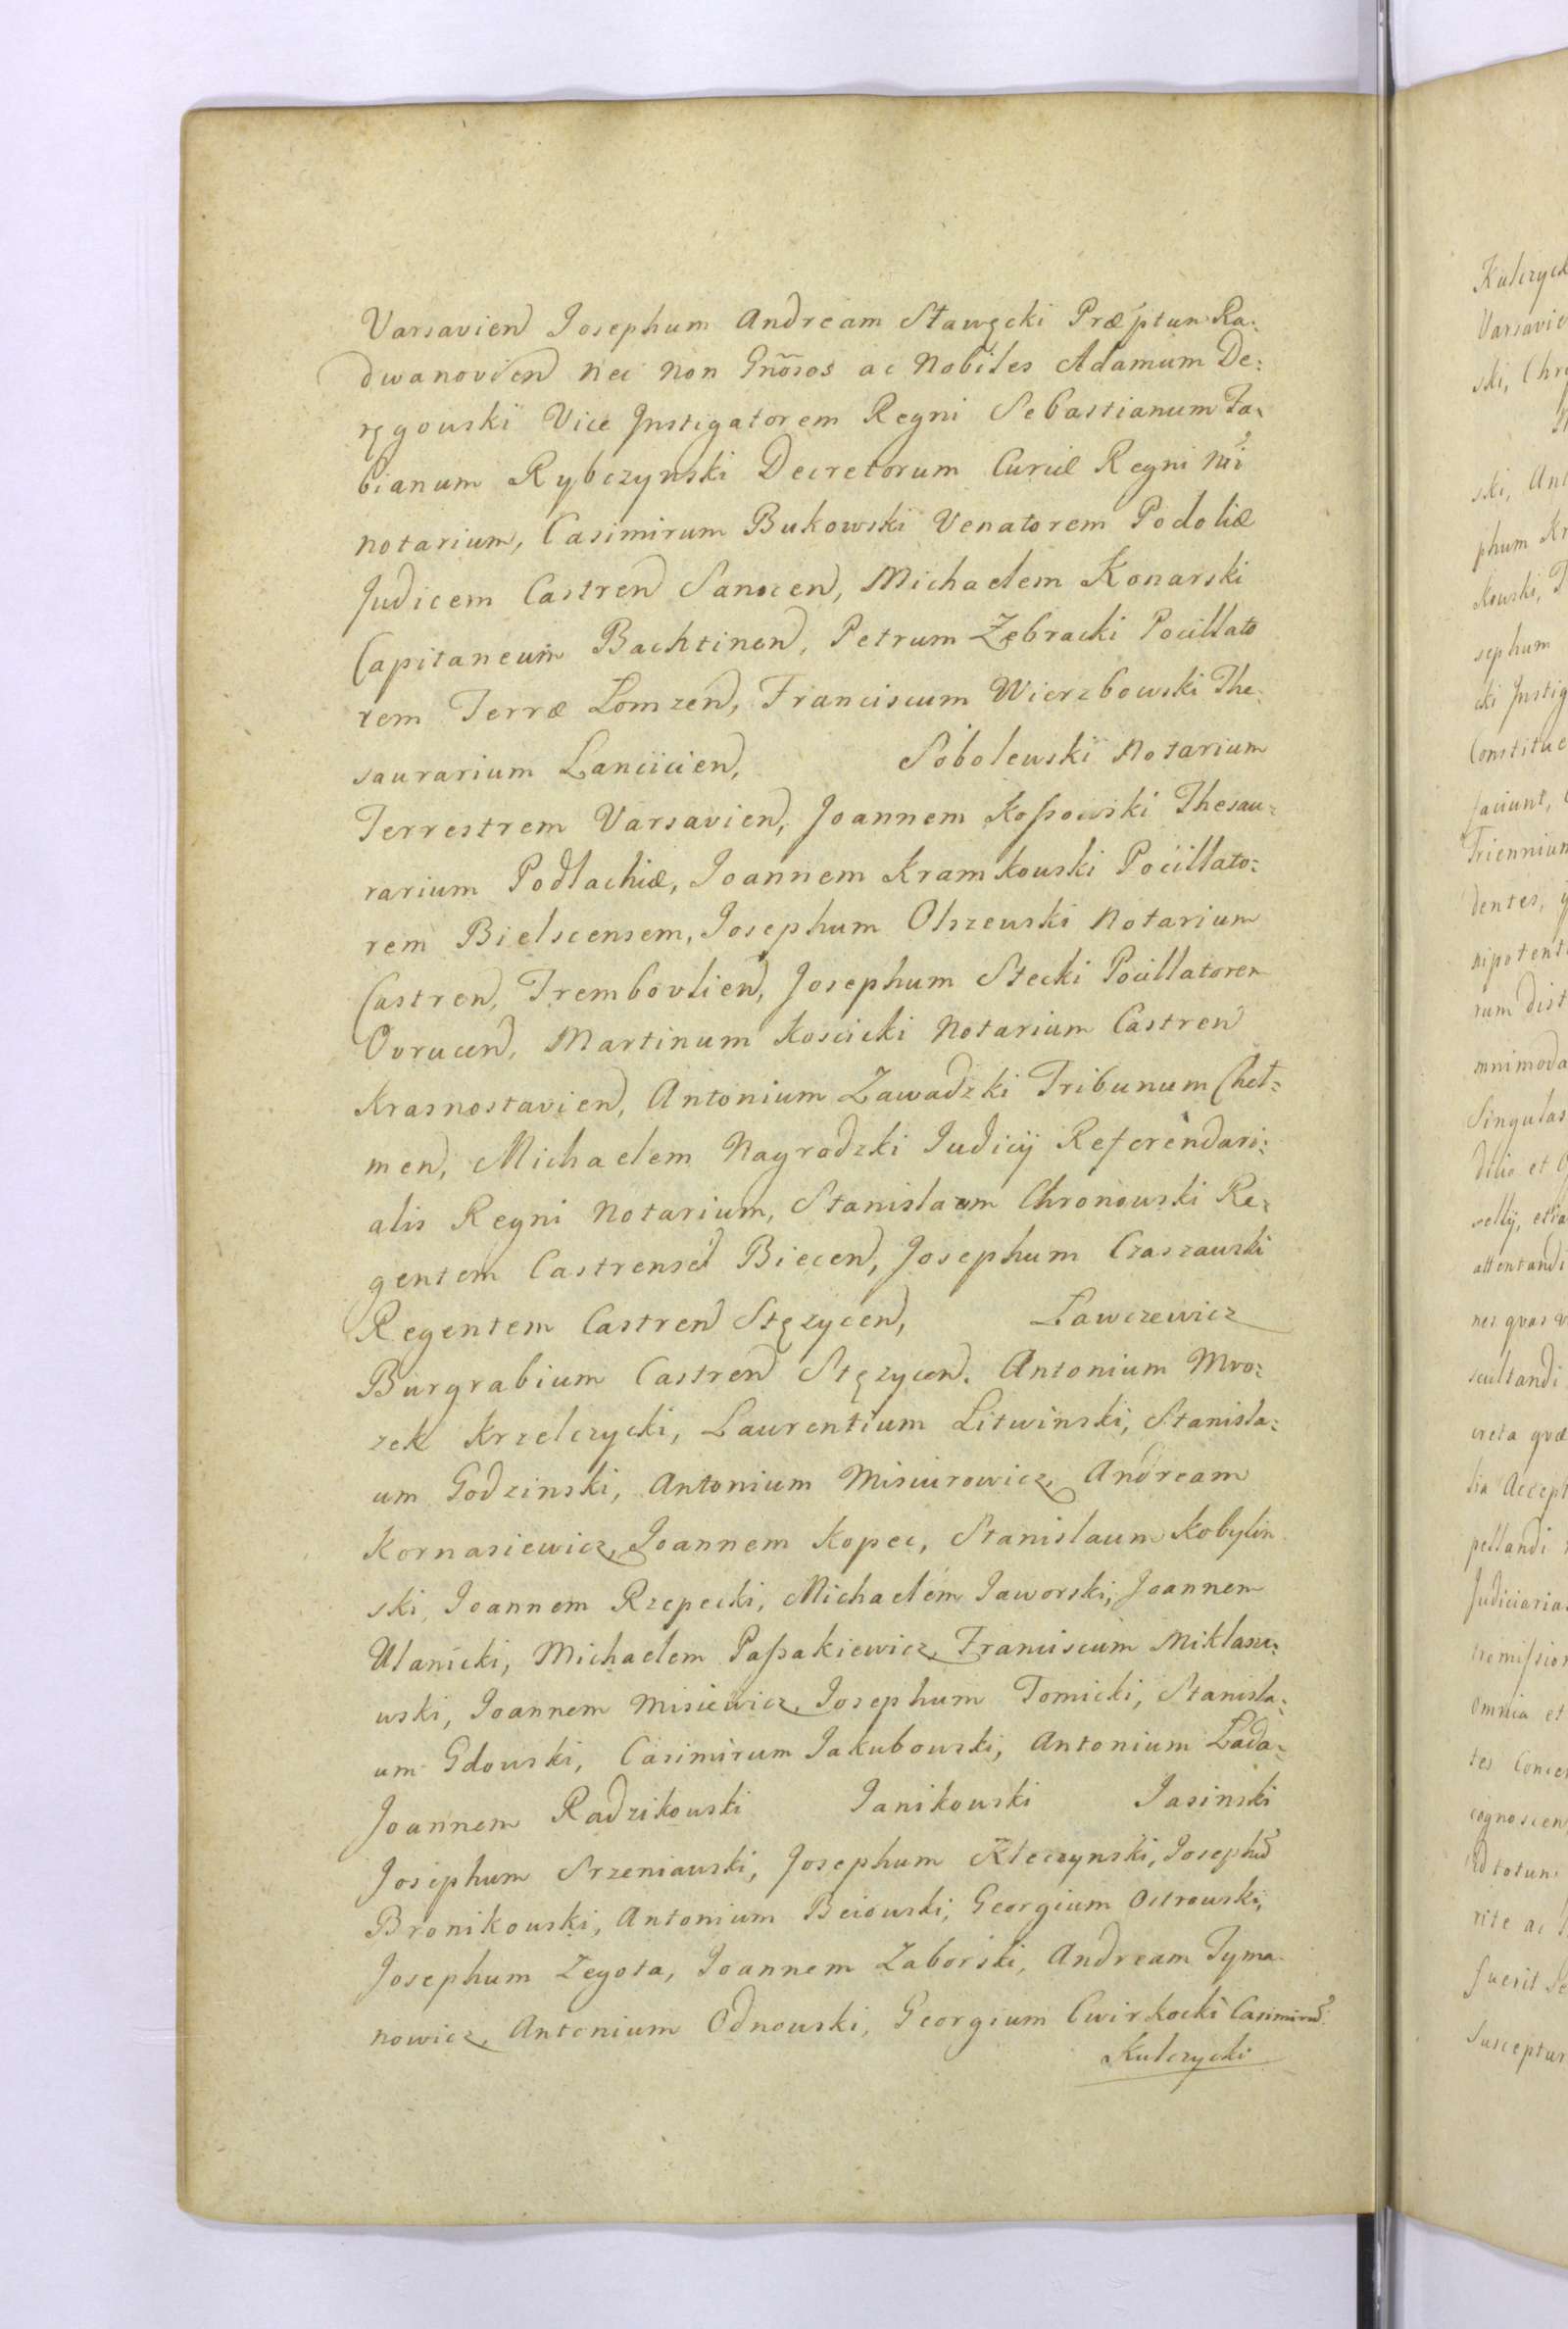 Varsavien Josephum Andream Stawęcki Præptum Ra:
dwanovien nec non Gnosos ac Nobiles Adamum De:
ręgowski Vice Instigatorem Regni Sebastianum Fa:
bianum Rybczynski Decretorum Curiæ Regni Mi
notarium, Casimirum Bukowski Venatorem Podoliæ
Judicem Castren Sanocen, Michaelem Konarski
Capitaneum Bachtinen, Petrum Zębracki Pocillato
rem Terræ Lomzen, Franciscum Wierzbowski The:
saurarium Lancicien, Sobolewski Notarium
Terrestrem Varsavien, Joannem Kossowski Thesau:
rarium Podlachiæ, Joannem Kramkowski Pocillato:
rem Bielscensem, Josephum Olszewski Notarium
Castren, Trembovlien, Josephum Stecki Pocillatorem
Ovrucen, Martinum Koscicki Notarium Castren
Krasnostavien, Antonium Zawadzki Tribunum Cheł:
men, Michaelem Nagrodzki Judicij Referendari:
alis Regni Notarium, Stanislaum Chronowski Re:
gentem Castrensem Biecen, Josephum Czaszawski
Regentem Castren Stęzycen, Lawczewicz
Burgrabium Castren Stęzycen. Antonium Mro:
zek Krzelczycki, Laurentium Litwinski, Stanisla:
um Godzinski, Antonium Misiurowicz, Andream
Kornasiewicz, Joannem Kopec, Stanislaum Kobylin
ski, Joannem Rzepecki, Michaelem Jaworski, Joannem
Ulanicki, Michaelem Passakiewicz, Franciscum Miklasze:
wski, Joannem Misiewicz, Josephum Tomicki, Stanisla:
um Gdowski, Casimirum Jakubowski, Antonium Lada:
Joannem Radzikowski Janikowski Jasinski
Josephum Srzeniawski, Josephum Kleczynski, Josephum
Bronikowski, Antonium Beiowski, Georgium Ostrowski,
Josephum Zegota, Joannem Zaborski, Andream Tyma
nowicz, Antonium Odnowski, Georgium Cwirkocki Casimirum
Kulczycki